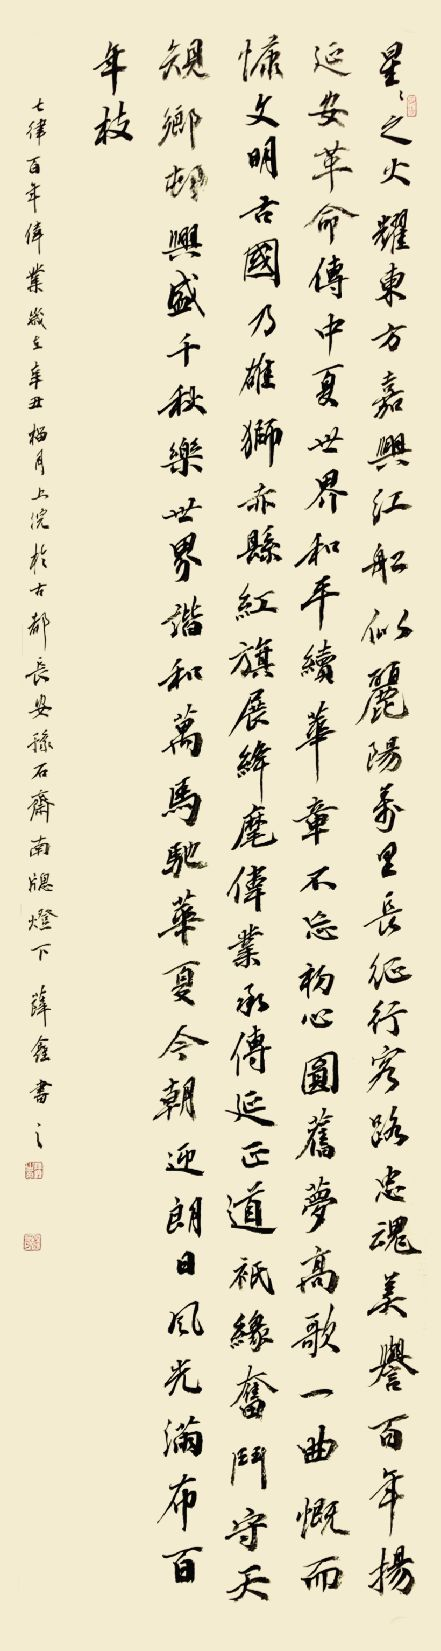 星〻之火耀東方嘉興江船似麗陽萬里長征行客路忠魂美譽百年揚
延安革命傳中夏世界和平續華章不忘初心圓舊夢高歌一曲慨而
慷文明古國乃雄獅赤縣紅旗展綘麾偉業承傳延正道祇緣奮鬥守天
規鄉邨興盛千秋樂世界諧和萬馬馳華夏今朝迎朗日風光滿布百
年枝
七律百年偉業歲在辛丑榴月上浣於古都長安豫石齋南牕燈下薛鑫書之